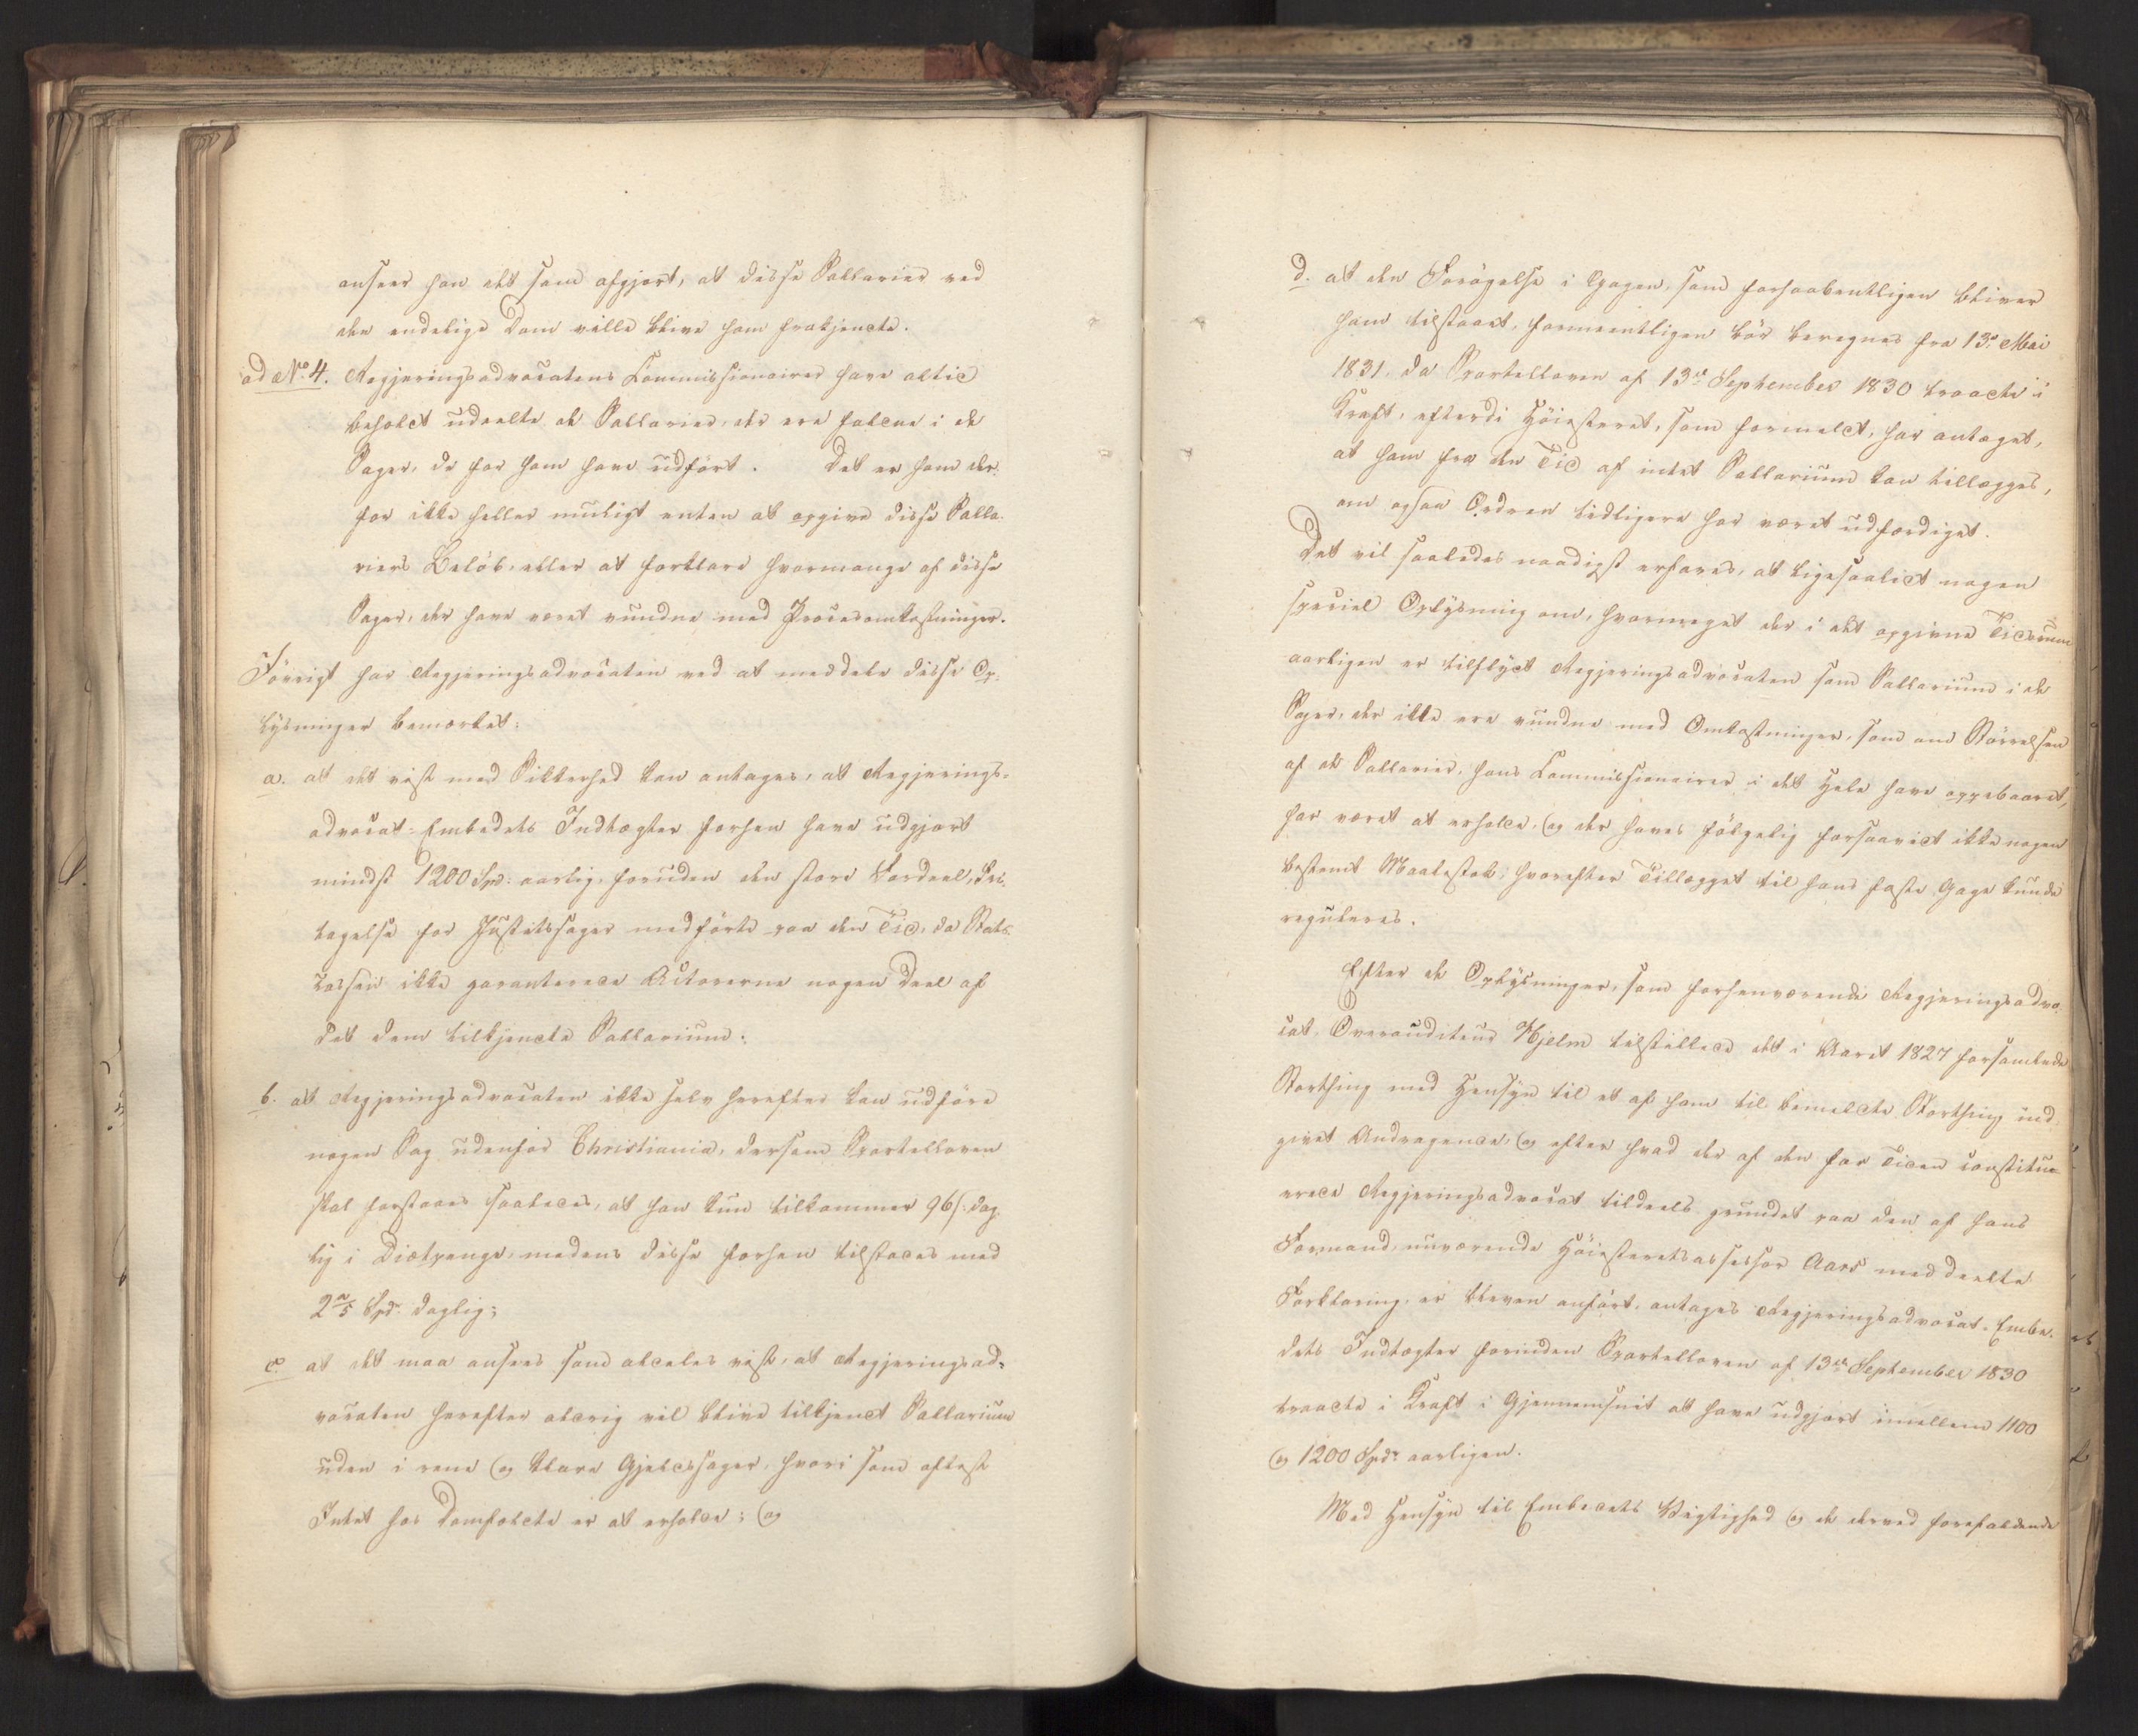 anseer han det som afgjort, at disse Sallarier ved
den endelige Dom ville blive ham frakjendte.
ad No. 4. Regjeringsadvocatens Commissionairer have altid
beholdt udeelte de Sallarier, der ere faldne i de
Sager, de for ham have udført. Det er ham der-
for ikke heller muligt enten at opgive disse Salla-
riers Beløb, eller at forklare hvormange af disse
Sager, der have været vundne med Procesomkostninger.
Iøvrigt har Regjeringsadvocaten ved at meddele disse Op-
lysninger bemærket:
a. at det vist med Sikkerhed kan antages, at Regjerings-
advocat-Embedets Indtægter forhen have udgjort
mindst 1200 Spd: aarlig, foruden den store Fordeel, Fri-
tagelse for Justitssager medførte paa den Tid, da Stats-
cassen ikke garanterede Actorerne nogen Deel af
det dem tilkjendte Sallarium:
b. at Regjeringsadvocaten ikke selv herefter kan udføre
nogen Sag udenfor Christiania, dersom Sportelloven
skal forstaaes saaledes, at han kun tilkommer 96 s. dag-
lig i Diætpenge, medens disse forhen tilstodes med
2 2/5 Spd. daglig;
c. at det maa ansees som aldeles vist, at Regjeringsad-
vocaten herefter aldrig vil blive tilkjendt Sallarium
uden i rene og klare Gjeldssager, hvori som oftest
Intet hos Domfældte er at erholde; og
d. at den Forøgelse i Gagen, som forhaabentligen bliver
ham tilstaaet, formeentligen bør beregnes fra 13de Mai
1831, da Sportelloven af 13de September 1830 traadte i
Kraft, efterdi Høiesteret, som formeldt, har antaget,
at ham fra den Tid af intet Sallarium kan tillægges,
om ogsaa Ordren tidligere har været udfærdiget.
Det vil saaledes naadigst erfares, at ligesaalidt nogen
speciel Oplysning om, hvormeget der i det opgivne Tidsrum
aarligen er tilflydt Regjeringsadvocaten som Sallarium i de
Sager, der ikke ere vundne med Omkostninger, som om Størrelsen
af de Sallarier, hans Commissionairer i det Hele have oppebaaret,
har været at erholde, og der haves følgelig forsaavidt ikke nogen
bestemt Maalestok, hvorefter Tillægget til hans faste Gage kunde
reguleres.
Efter de Oplysninger, som forhenværende Regjeringsadvo-
cat, Overauditeur Hjelm tilstillede det i Aaret 1827 forsamlede
Storthing med Hensyn til et af ham til bemeldte Storthing ind-
givet Andragende, og efter hvad der af den for Tiden constitu-
erede Regjeringsadvocat, tildeels grundet paa den af hans
Formand, nuværende Høiesteretsassessor Aars meddeelte
Forklaring, er bleven anført, antages Regjeringsadvocat-Embe-
dets Indtægter forinden Sportelloven af 13de September 1830
traadte i Kraft i Gjennemsnit at have udgjort imellem 1100
og 1200 Spdr aarligen.
Med Hensyn til Embedets Vigtighed og de derved forefaldende